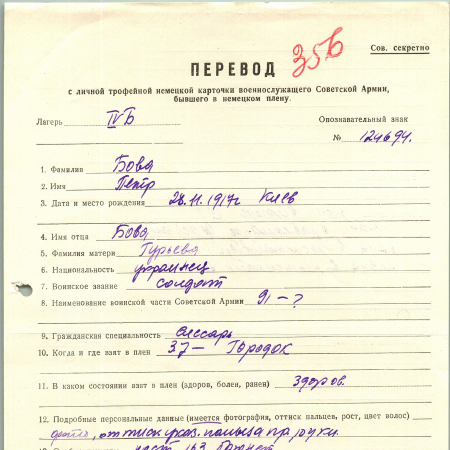 356
Сов. секретно
ПЕРЕВОД
с личной трофейной немецкой карточки военнослужащего Советской Армии,
бывшего в немецком плену.
Лагерь IVБ
Опознавательный знак
№ 124694.
1. Фамилия Бова
2. Имя Петр
3. Дата и место рождения 28.11.1917г Киев
4. Имя отца Бова
5. Фамилия матери Гурьева
6. Национальность украинец
7. Воинское звание солдат
8. Наименование воинской части Советской Армии 91 – ?
9. Гражданская специальность слесарь
10. Когда и где взят в плен 37 — Городок
11. В каком состоянии взят в плен (здоров, болен, ранен) здоров
12. Подробные персональные данные (имеется фотография, оттиск пальцев, рост, цвет волос)
фото, оттиск указ. пальца пр. руки.
рост 163